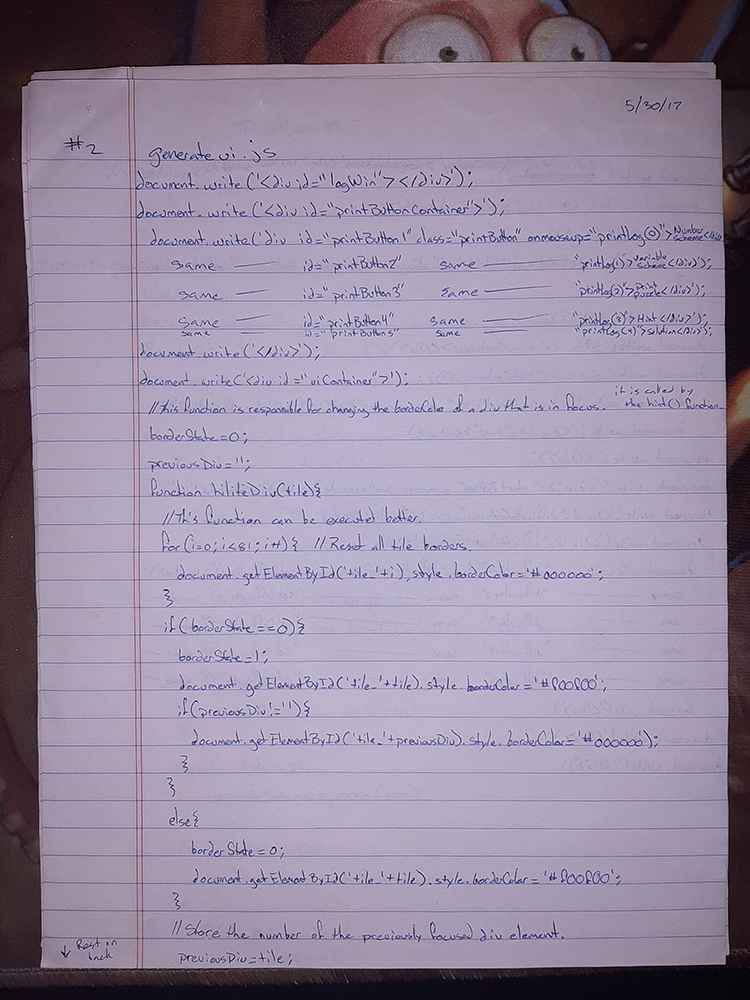 5/30/17
#2
generate ui.js
document.write('<div id="logWin"></div>');
document.write('<div id="printButtonContainer">');
document.write('div id="printButton1" class="printButton" onmouseup="printLog(0)">Number Scheme</div>
Same — id="printButton2" same — "printLog(1)>Variable Scheme</div>');
same — id="printButton3" same — "printLog(2)">Print puzzle</div>');
Same — id="printButton4" same — "printLog(3)">Hint</div>');
same — id="printButton5" same — "printLog(4)">Solution</div>');
document.write('</div>');
document.write('<div id="uiContainer">');
//This function is responsible for changing the borderColor of a div that is in focus. it is called by the hint() function.
borderState=0;
previousDiv='';
function hiliteDiv(tile){
//This function can be executed better.
for(i=0;i<81;i++){ //Reset all tile borders.
document.getElementById('tile_'+i).style.borderColor='#000000';
}
if(borderState==0){
borderState=1;
document.getElementById('tile_'+tile).style.borderColor='#f00f00';
if(previousDiv!=''){
document.getElementById('tile_'+previousDiv).style.borderColor='#000000');
}
}
else{
borderState=0;
document.getElementById('tile_'+tile).style.borderColor='#f00f00';
}
//Store the number of the previously focused div element.
previousDiv=tile;
↓ Rest on back